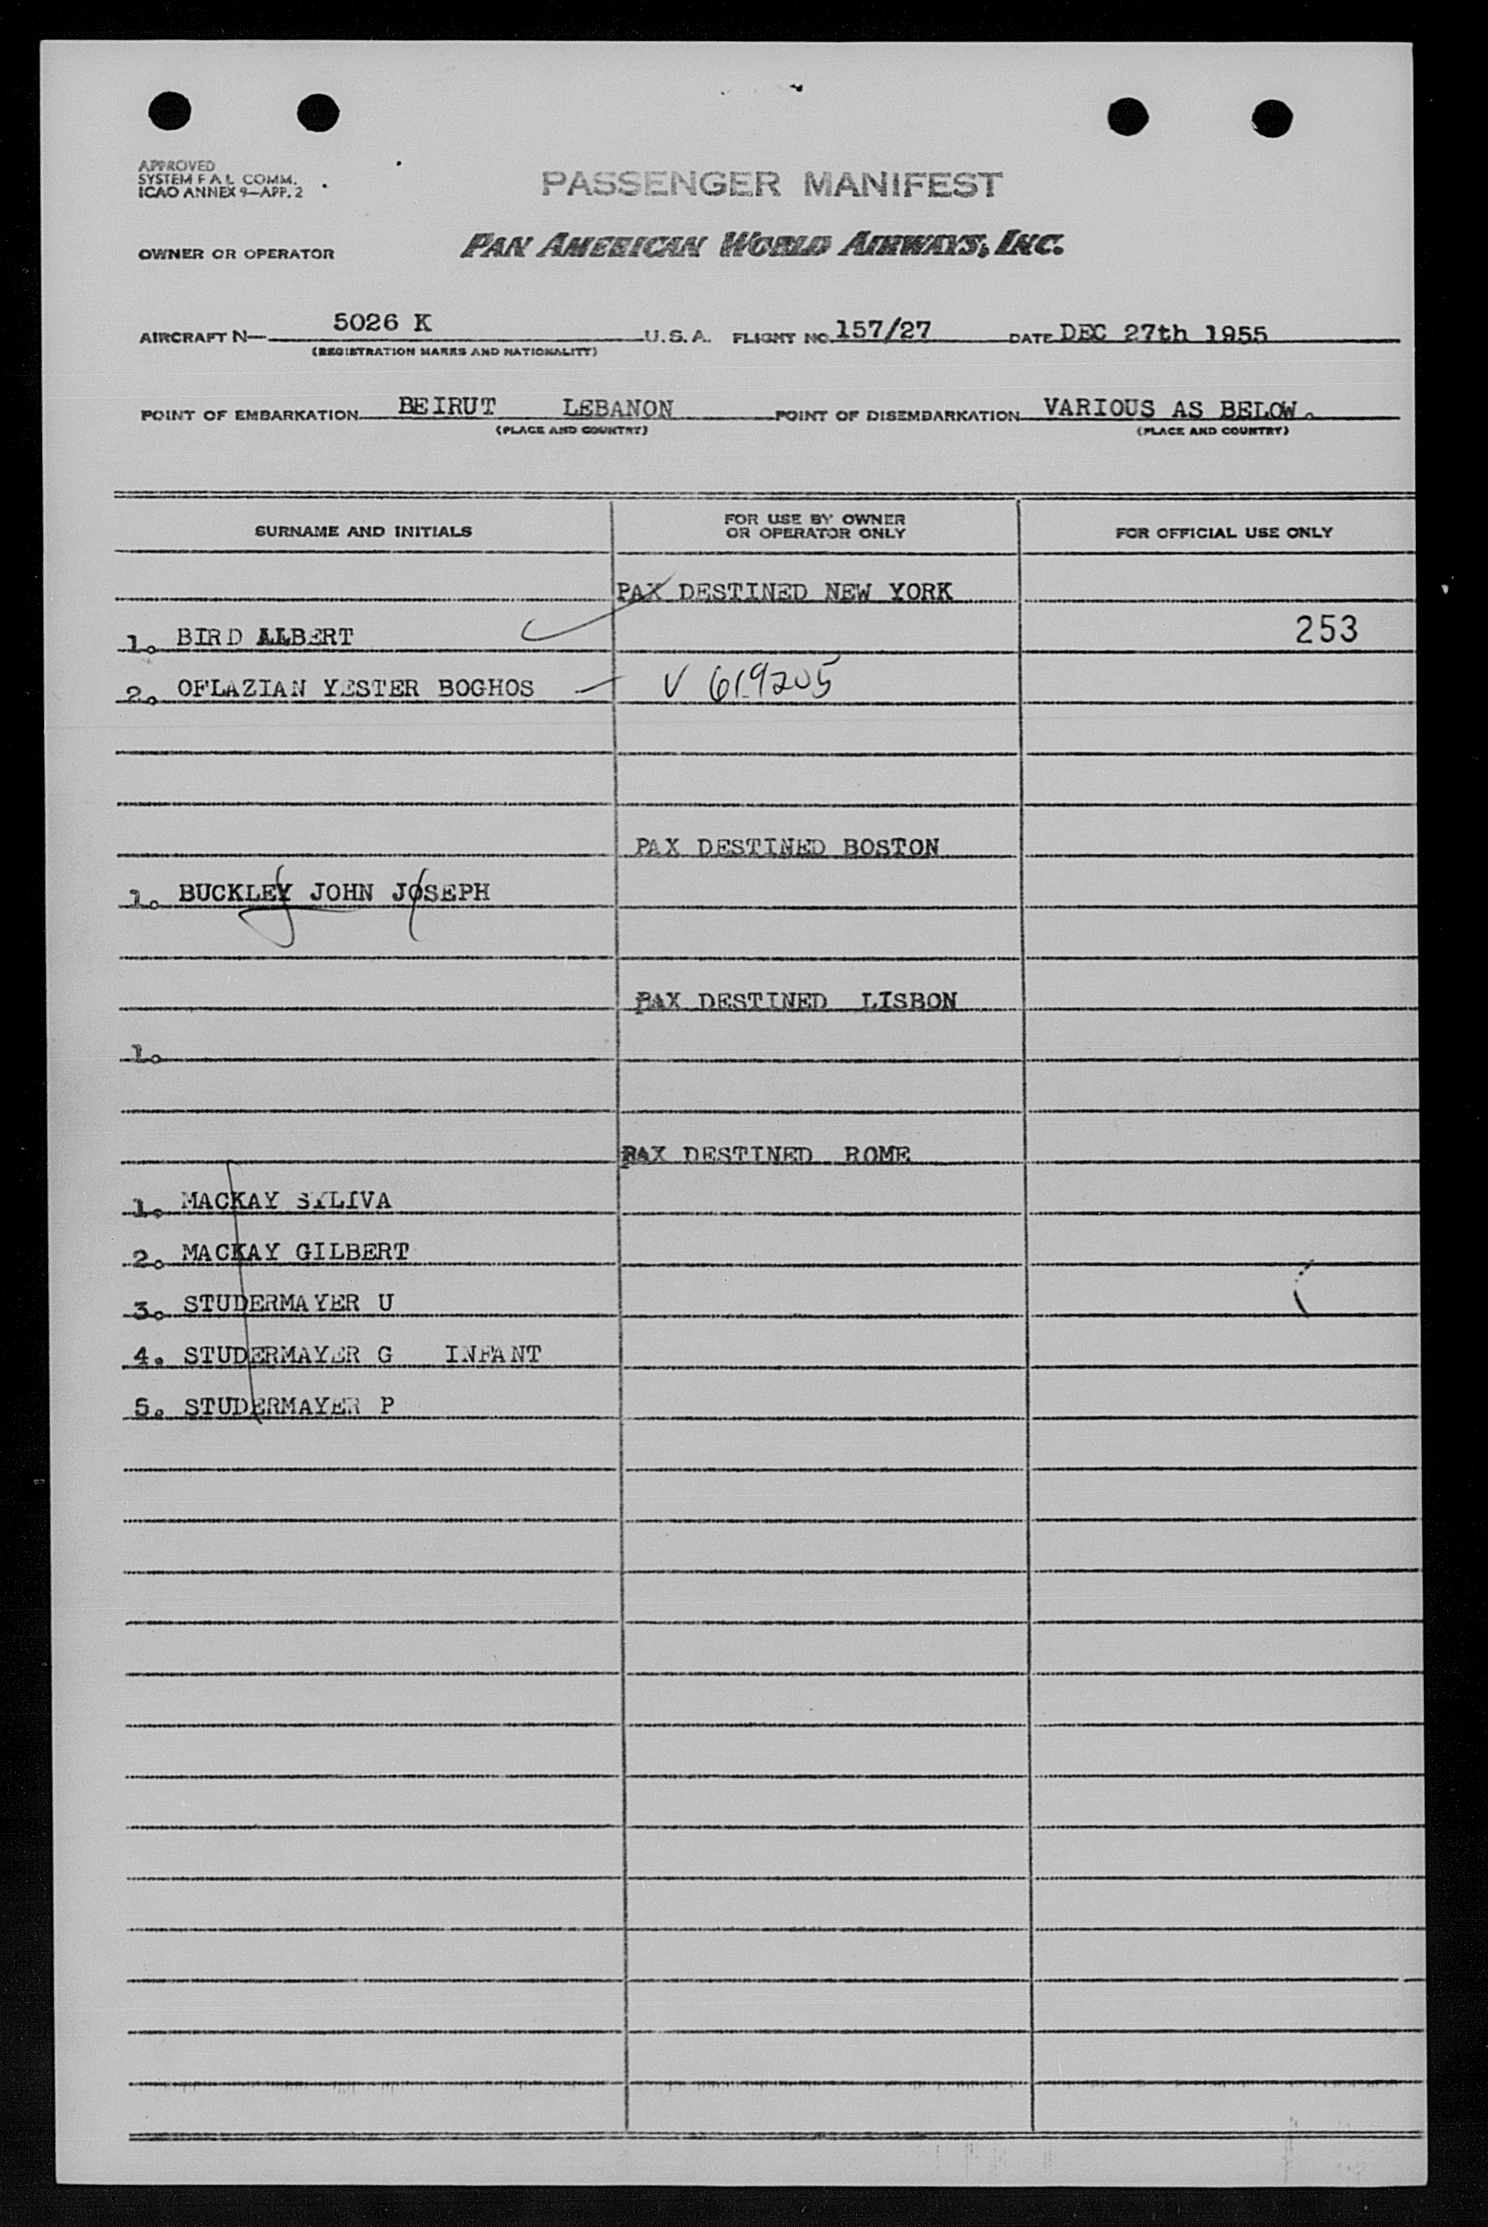 APPROVED
SYSTEM F A L COMM.
ICAO ANNEX 9—APP. 2
PASSENGER MANIFEST
OWNER OR OPERATOR PAN AMERICAN WORLD AIRWAYS, INC.
AIRCRAFT N— 5026 K U.S.A. FLIGHT NO. 157/27 DATE DEC 27th 1955
(REGISTRATION MARKS AND NATIONALITY)
POINT OF EMBARKATION BEIRUT LEBANON POINT OF DISEMBARKATION VARIOUS AS BELOW.
(PLACE AND COUNTRY) (PLACE AND COUNTRY)
SURNAME AND INITIALS FOR USE BY OWNER OR OPERATOR ONLY FOR OFFICIAL USE ONLY
PAX DESTINED NEW YORK
1. BIRD ALBERT 253
2. OFLAZIAN YESTER BOGHOS V 619205
PAX DESTINED BOSTON
1. BUCKLEY JOHN JOSEPH
PAX DESTINED LISBON
1.
PAX DESTINED ROME
1. MACKAY SYLIVA
2. MACKAY GILBERT
3. STUDERMAYER U
4. STUDERMAYER G INFANT
5. STUDERMAYER P